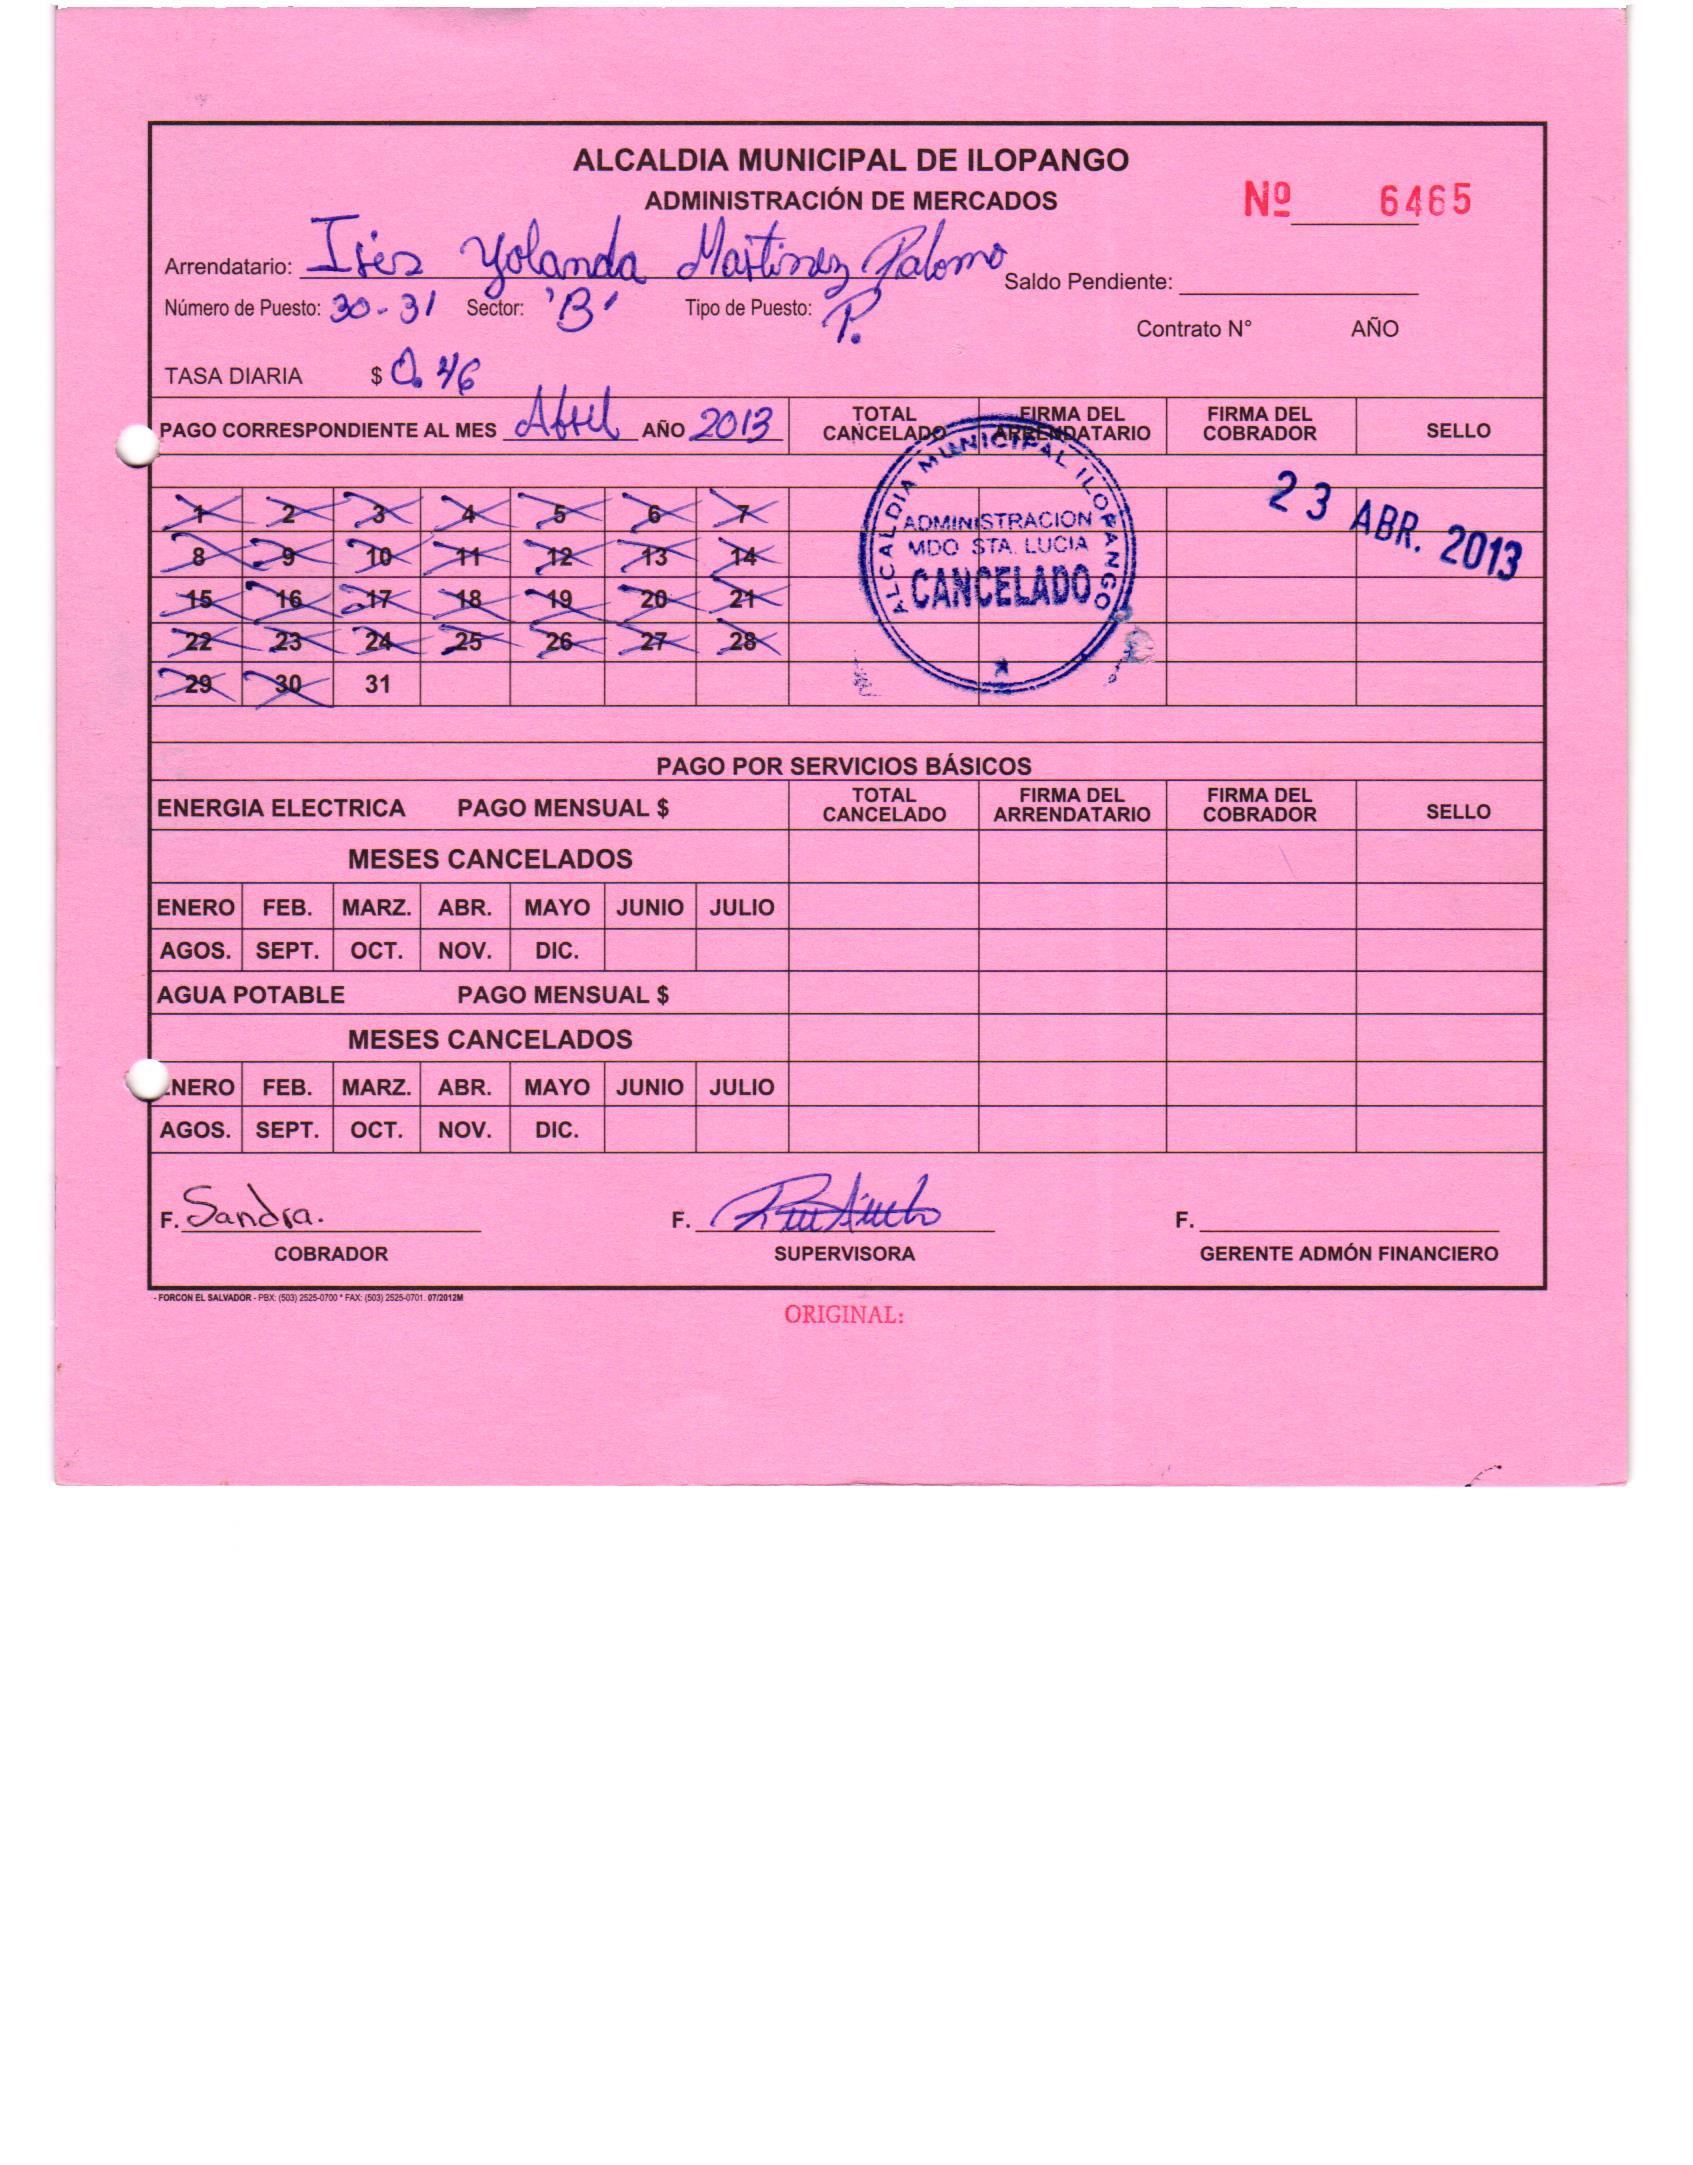 ALCALDIA MUNICIPAL DE ILOPANGO
ADMINISTRACIÓN DE MERCADOS
Nº 6465
Arrendatario: Yolanda Martinez Palomo
Saldo Pendiente:
Número de Puesto: 30-31 Sector: 'B' Tipo de Puesto: P.
Contrato N° AÑO
TASA DIARIA $ 0.46
PAGO CORRESPONDIENTE AL MES Abril AÑO 2013 TOTAL CANCELADO FIRMA DEL ARRENDATARIO FIRMA DEL COBRADOR SELLO
1 2 3 4 5 6 7
8 9 10 11 12 13 14
15 16 17 18 19 20 21
22 23 24 25 26 27 28
29 30 31
ALCALDIA MUNICIPAL ILOPANGO
ADMINISTRACION
MDO STA. LUCIA
CANCELADO
23 ABR. 2013
PAGO POR SERVICIOS BÁSICOS
ENERGIA ELECTRICA PAGO MENSUAL $ TOTAL CANCELADO FIRMA DEL ARRENDATARIO FIRMA DEL COBRADOR SELLO
MESES CANCELADOS
ENERO FEB. MARZ. ABR. MAYO JUNIO JULIO
AGOS. SEPT. OCT. NOV. DIC.
AGUA POTABLE PAGO MENSUAL $
MESES CANCELADOS
ENERO FEB. MARZ. ABR. MAYO JUNIO JULIO
AGOS. SEPT. OCT. NOV. DIC.
F. Sandra. F. F.
COBRADOR SUPERVISORA GERENTE ADMÓN FINANCIERO
- FORCON EL SALVADOR - PBX: (503) 2525-0700 * FAX: (503) 2525-0701. 07/2012M
ORIGINAL: